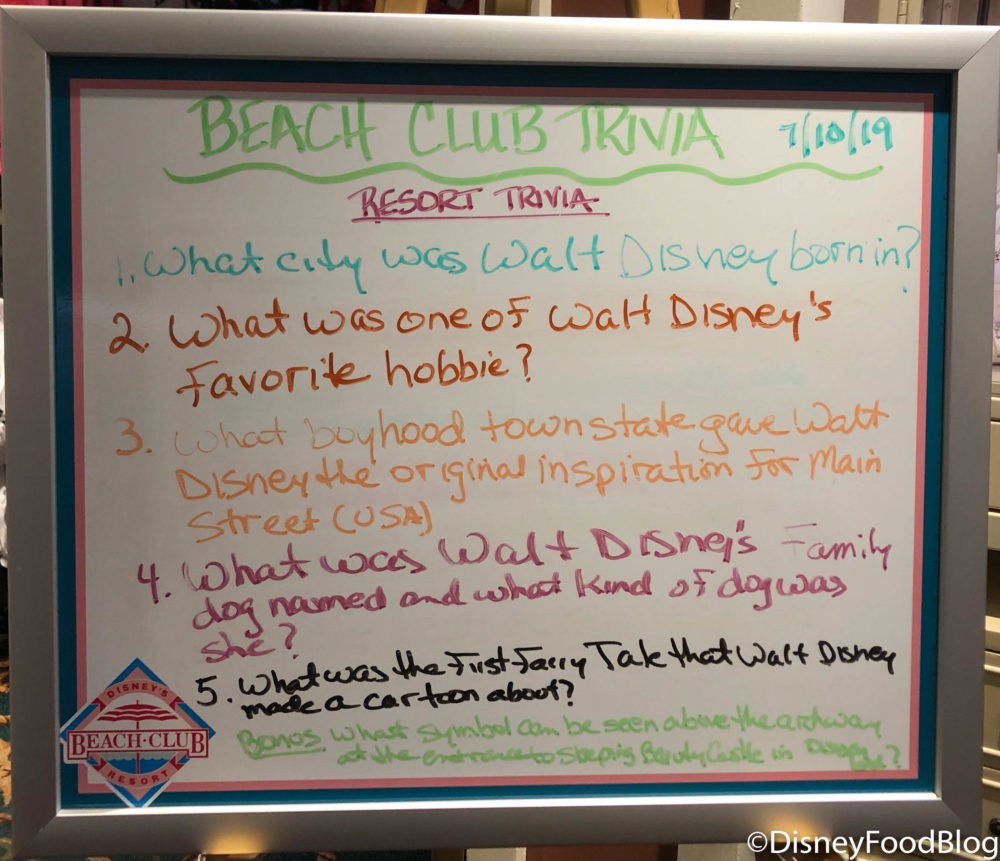 BEACH CLUB TRIVIA 7/10/19
RESORT TRIVIA
1. What city was Walt Disney born in?
2. What was one of Walt Disney's
favorite hobbie?
3. What boyhood town state gave Walt
Disney the original inspiration for Main
Street (USA)
4. What was Walt Disney's Family
dog named and what kind of dog was
she?
5. What was the First Fairy Tale that Walt Disney
made a cartoon about?
Bonus What symbol can be seen above the archway
at the entrance to Sleeping Beauty Castle in
DISNEY'S
BEACH·CLUB
RESORT
©DisneyFoodBlog